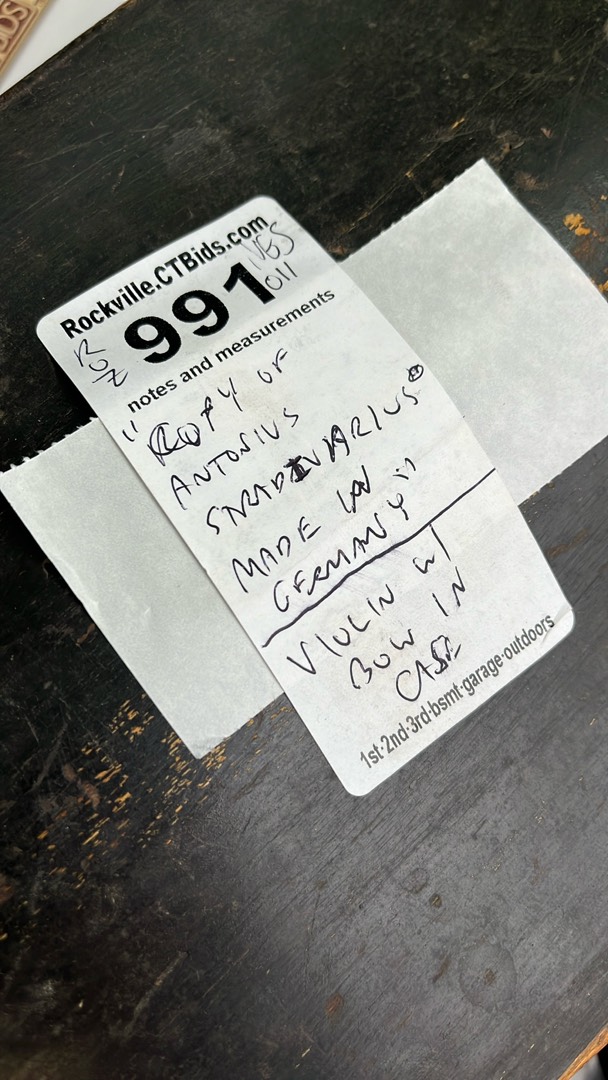 Rockville.CTBids.com
991
notes and measurements
"COPY OF
ANTONIUS
STRADIVARIUS
MADE IN
GERMANY"
VIOLIN w/
BOW IN
CASE
1st·2nd·3rd·bsmt·garage·outdoors